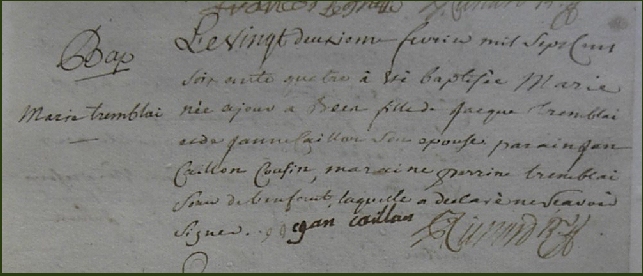 Bap
Marie tremblai
Le vingt deuxieme fevrier mil Sept Cent
soixante quatre à été baptisée Marie
née ajour a Beer fille de jacque tremblai
et de janne Caillon Son epouse parain jan
Caillon Cousin, maraine perrine tremblai
Soeur de l'enfent, laquelle a declaré ne scavoir
signer. jan caillon